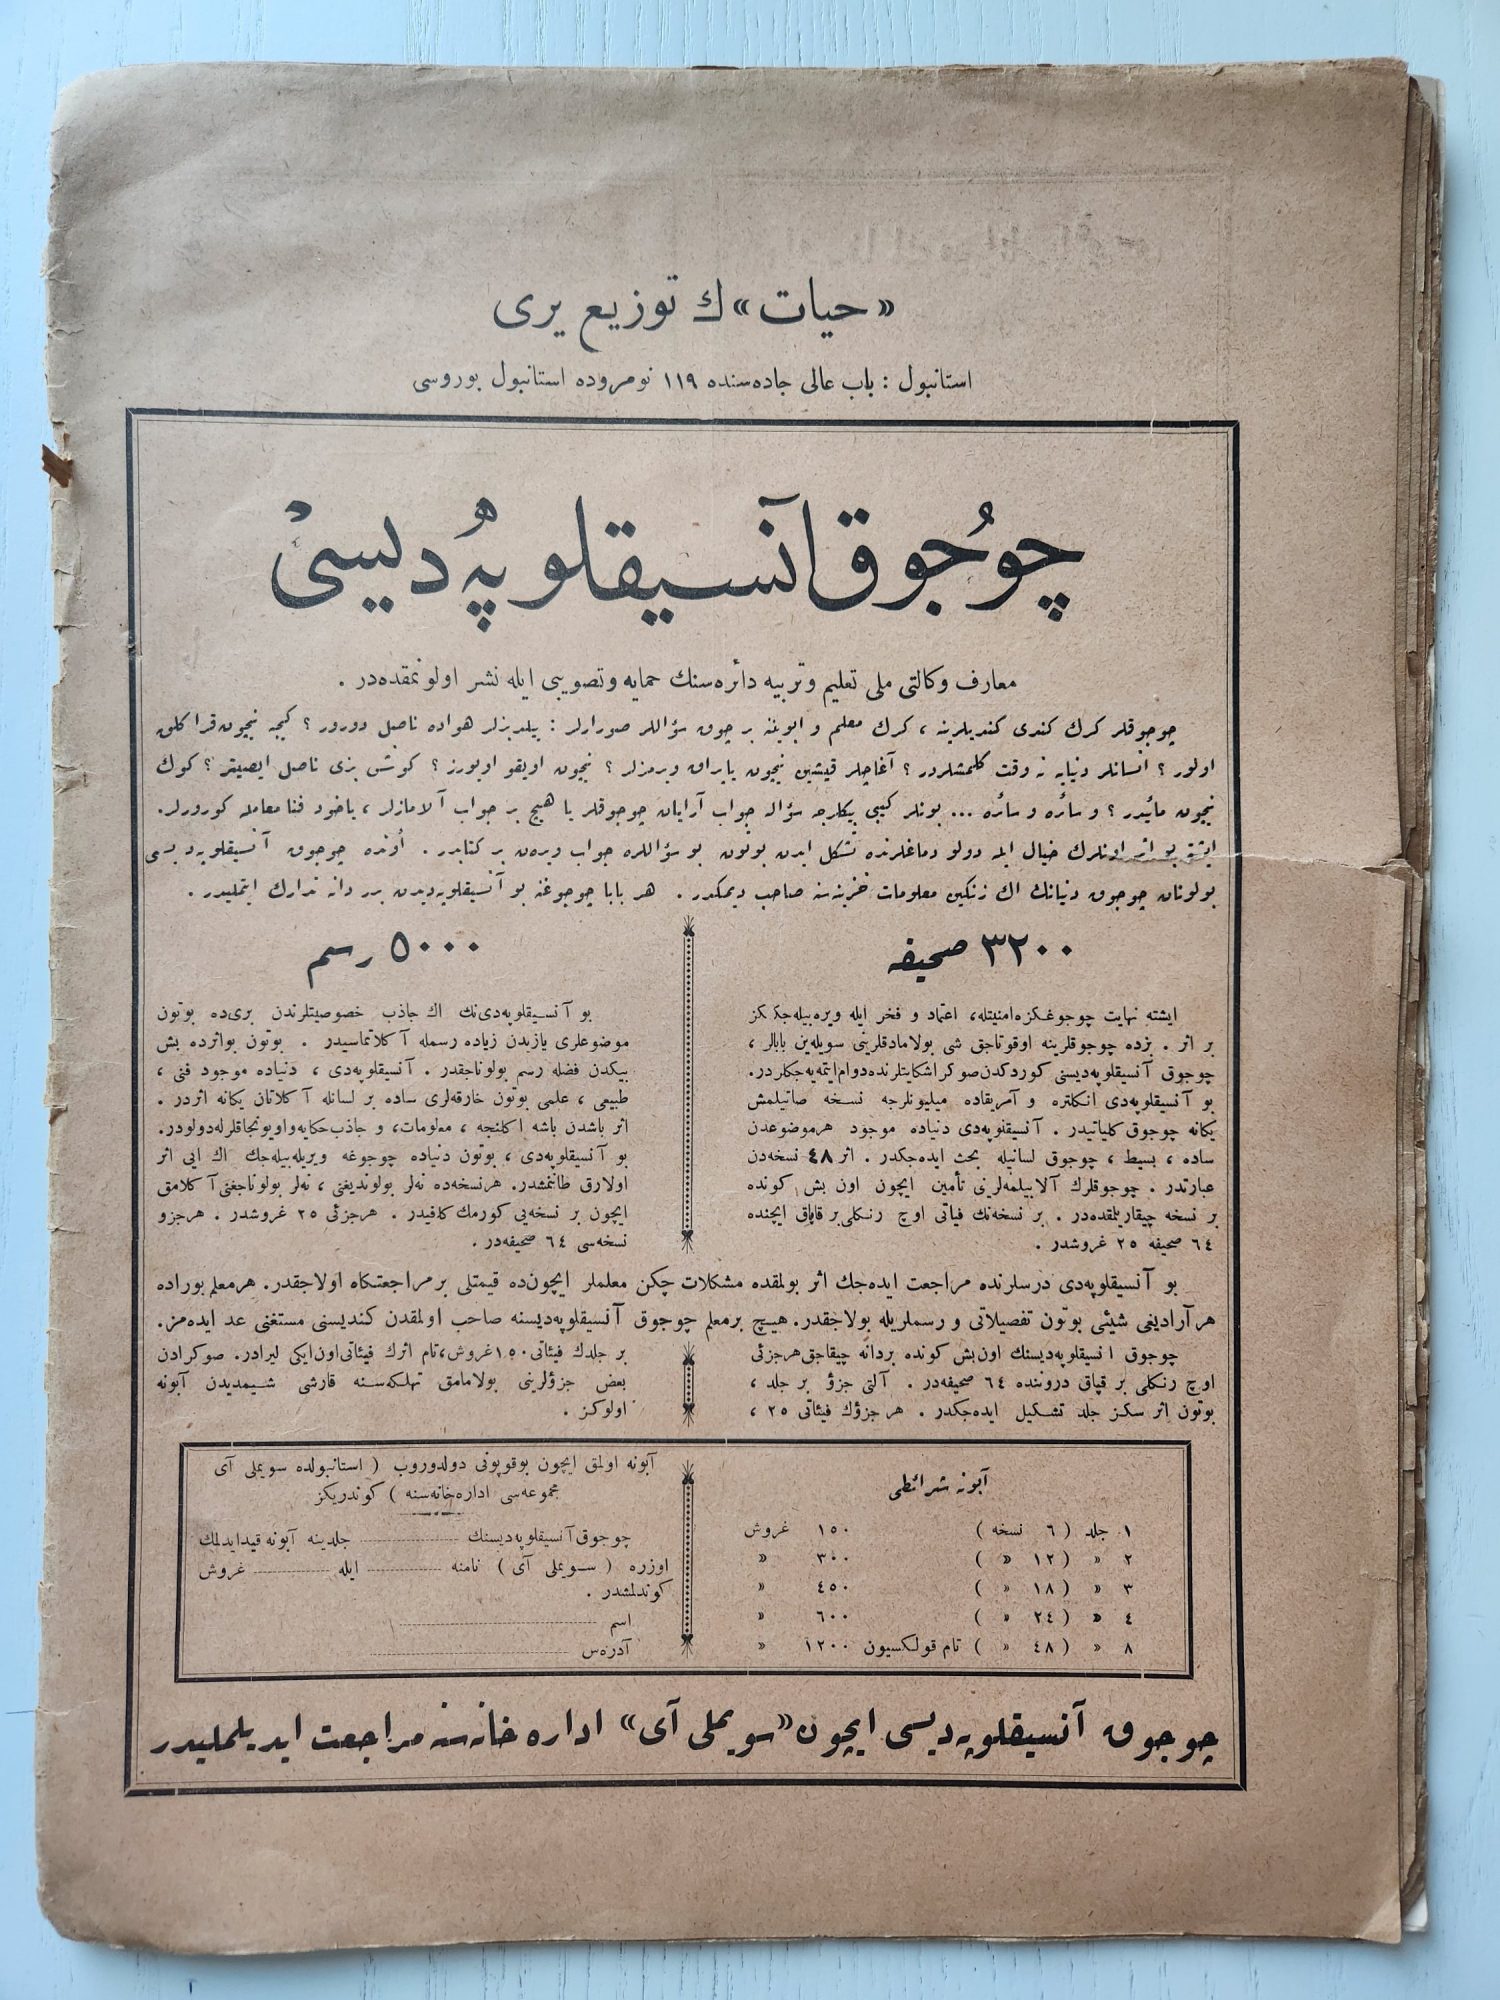 «حیات»ك توزیع یری
استانبول : باب عالی جاده‌سنده ١١٩ نومروده استانبول بوروسی
چوُجوق آنسیقلوپه‌دیسیْ
معارف وكالتی ملی تعلیم و تربیه دائره‌سنك حمایه و تصویبی ایله نشر اولونمقده‌در .
چوجوقلر كرك كندی كندیلرینه ، كرك معلم و ابویننه بر چوق سؤاللر صورارلر : ییلدیزلر هواده ناصل دورور ؟ كیجه نیچون قراكلق
اولور ؟ انسانلر دنیایه نه وقت كلمشلردر ؟ آغاچلر قیشین نیچون یاپراق ویرمزلر ؟ نیچون اویقو اویورز ؟ كونش بزی ناصل ایصیتیر ؟ كوك
نیچون مائیدر ؟ و سائره و سائره ... بونلر كیبی بیكلرجه سؤاله جواب آرایان چوجوقلر یا هیچ بر جواب آلامازلر ، یاخود فنا معامله كورورلر.
ایشته بو اثر اونلرك خیال ایله دولو دماغلرنده تشكل ایدن بوتون بو سؤاللره جواب ویره‌ن بر كتابدر . أونده چوجوق آنسیقلوپه‌دیسی
بولونان چوجوق دنیانك اك زنكین معلومات خزینه‌سنه صاحب دیمكدر . هر بابا چوجوغنه بو آنسیقلوپه‌دیدن بر دانه تدارك ایتملیدر .
٣٢٠٠ صحیفه
ایشته نهایت چوجوغكزه امنیتله، اعتماد و فخر ایله ویره‌بیله‌جككز
بر اثر . بزده چوجوقلرینه اوقوتاجق شی بولامادقلرینی سویله‌ین بابالر ،
چوجوق آنسیقلوپه‌دیسنی كوردكدن صوكرا شكایتلرنده دوام ایتمه‌یه‌جكلردر.
بو آنسیقلوپه‌دی انكلتره و آمریقاده میلیونلرجه نسخه صاتیلمش
یكانه چوجوق كلیاتیدر . آنسیقلوپه‌دی دنیاده موجود هر موضوعدن
ساده ، بسیط ، چوجوق لسانیله بحث ایده‌جكدر . اثر ٤٨ نسخه‌دن
عبارتدر . چوجوقلرك آلابیلمه‌لرینی تأمین ایچون اون بش كونده
بر نسخه چیقاریلمقده‌در . بر نسخه‌نك فیاتی اوچ رنكلی بر قاپاق ایچنده
٦٤ صحیفه ٢٥ غروشدر .
٥٠٠٠ رسم
بو آنسیقلوپه‌دی‌نك اك جاذب خصوصیتلرندن بری‌ده بوتون
موضوعلری یازیدن زیاده رسمله آكلاتماسیدر . بوتون بو اثرده بش
بیكدن فضله رسم بولوناجقدر . آنسیقلوپه‌دی ، دنیاده موجود فنی ،
طبیعی ، علمی بوتون خارقه‌لری ساده بر لسانله آكلاتان یكانه اثردر .
اثر باشدن باشه اكلنجه ، معلومات، و جاذب حكایه و اویونجاقلرله دولودر.
بو آنسیقلوپه‌دی ، بوتون دنیاده چوجوغه ویریله‌بیله‌جك اك ایی اثر
اولارق طاننمشدر. هر نسخه‌ده نه‌لر بولوندیغنی ، نه‌لر بولوناجغنی آكلامق
ایچون بر نسخه‌یی كورمك كافیدر . هر جزئی ٢٥ غروشدر . هر جزو
نسخه‌سی ٦٤ صحیفه‌در .
بو آنسیقلوپه‌دی درسلرنده مراجعت ایده‌جك اثر بولمقده مشكلات چكن معلملر ایچون‌ده قیمتلی بر مراجعتكاه اولاجقدر. هر معلم بوراده
هر آرادیغی شیئی بوتون تفصیلاتی و رسملریله بولاجقدر. هیچ بر معلم چوجوق آنسیقلوپه‌دیسنه صاحب اولمقدن كندیسنی مستغنی عد ایده‌مز.
چوجوق انسیقلوپه‌دیسنك اون بش كونده بر دانه چیقاجق هر جزئی
اوچ رنكلی بر قپاق دروننده ٦٤ صحیفه‌در . آلتی جزؤ بر جلد ،
بوتون اثر سكز جلد تشكیل ایده‌جكدر . هر جزؤك فیئاتی ٢٥ ،
بر جلدك فیئاتی ١٥٠ غروش، تام اثرك فیئاتی اون ایكی لیرادر. صوكرادن
بعض جزؤلرینی بولامامق تهلكه‌سنه قارشی شیمدیدن آبونه
اولوكز .
آبونه شرائطی
١ جلد ( ٦ نسخه ) ١٥٠ غروش
٢ » ( ١٢ » ) ٣٠٠ »
٣ » ( ١٨ » ) ٤٥٠ »
٤ » ( ٢٤ » ) ٦٠٠ »
٨ » ( ٤٨ » ) تام قولكسیون ١٢٠٠ »
آبونه اولمق ایچون بو قوپونی دولدوروب ( استانبولده سویملی آی
مجموعه‌سی اداره‌خانه‌سنه ) كوندریكز
چوجوق آنسیقلوپه‌دیسنك ........ جلدینه آبونه قید ایدلمك
اوزره ( سویملی آی ) نامنه ........ ایله ........ غروش
كوندلمشدر .
اسم ........
آدره‌س ........
چوجوق آنسیقلوپه‌دیسی ایچون «سویملی آی» اداره خانه‌سنه مراجعت ایدیلملیدر